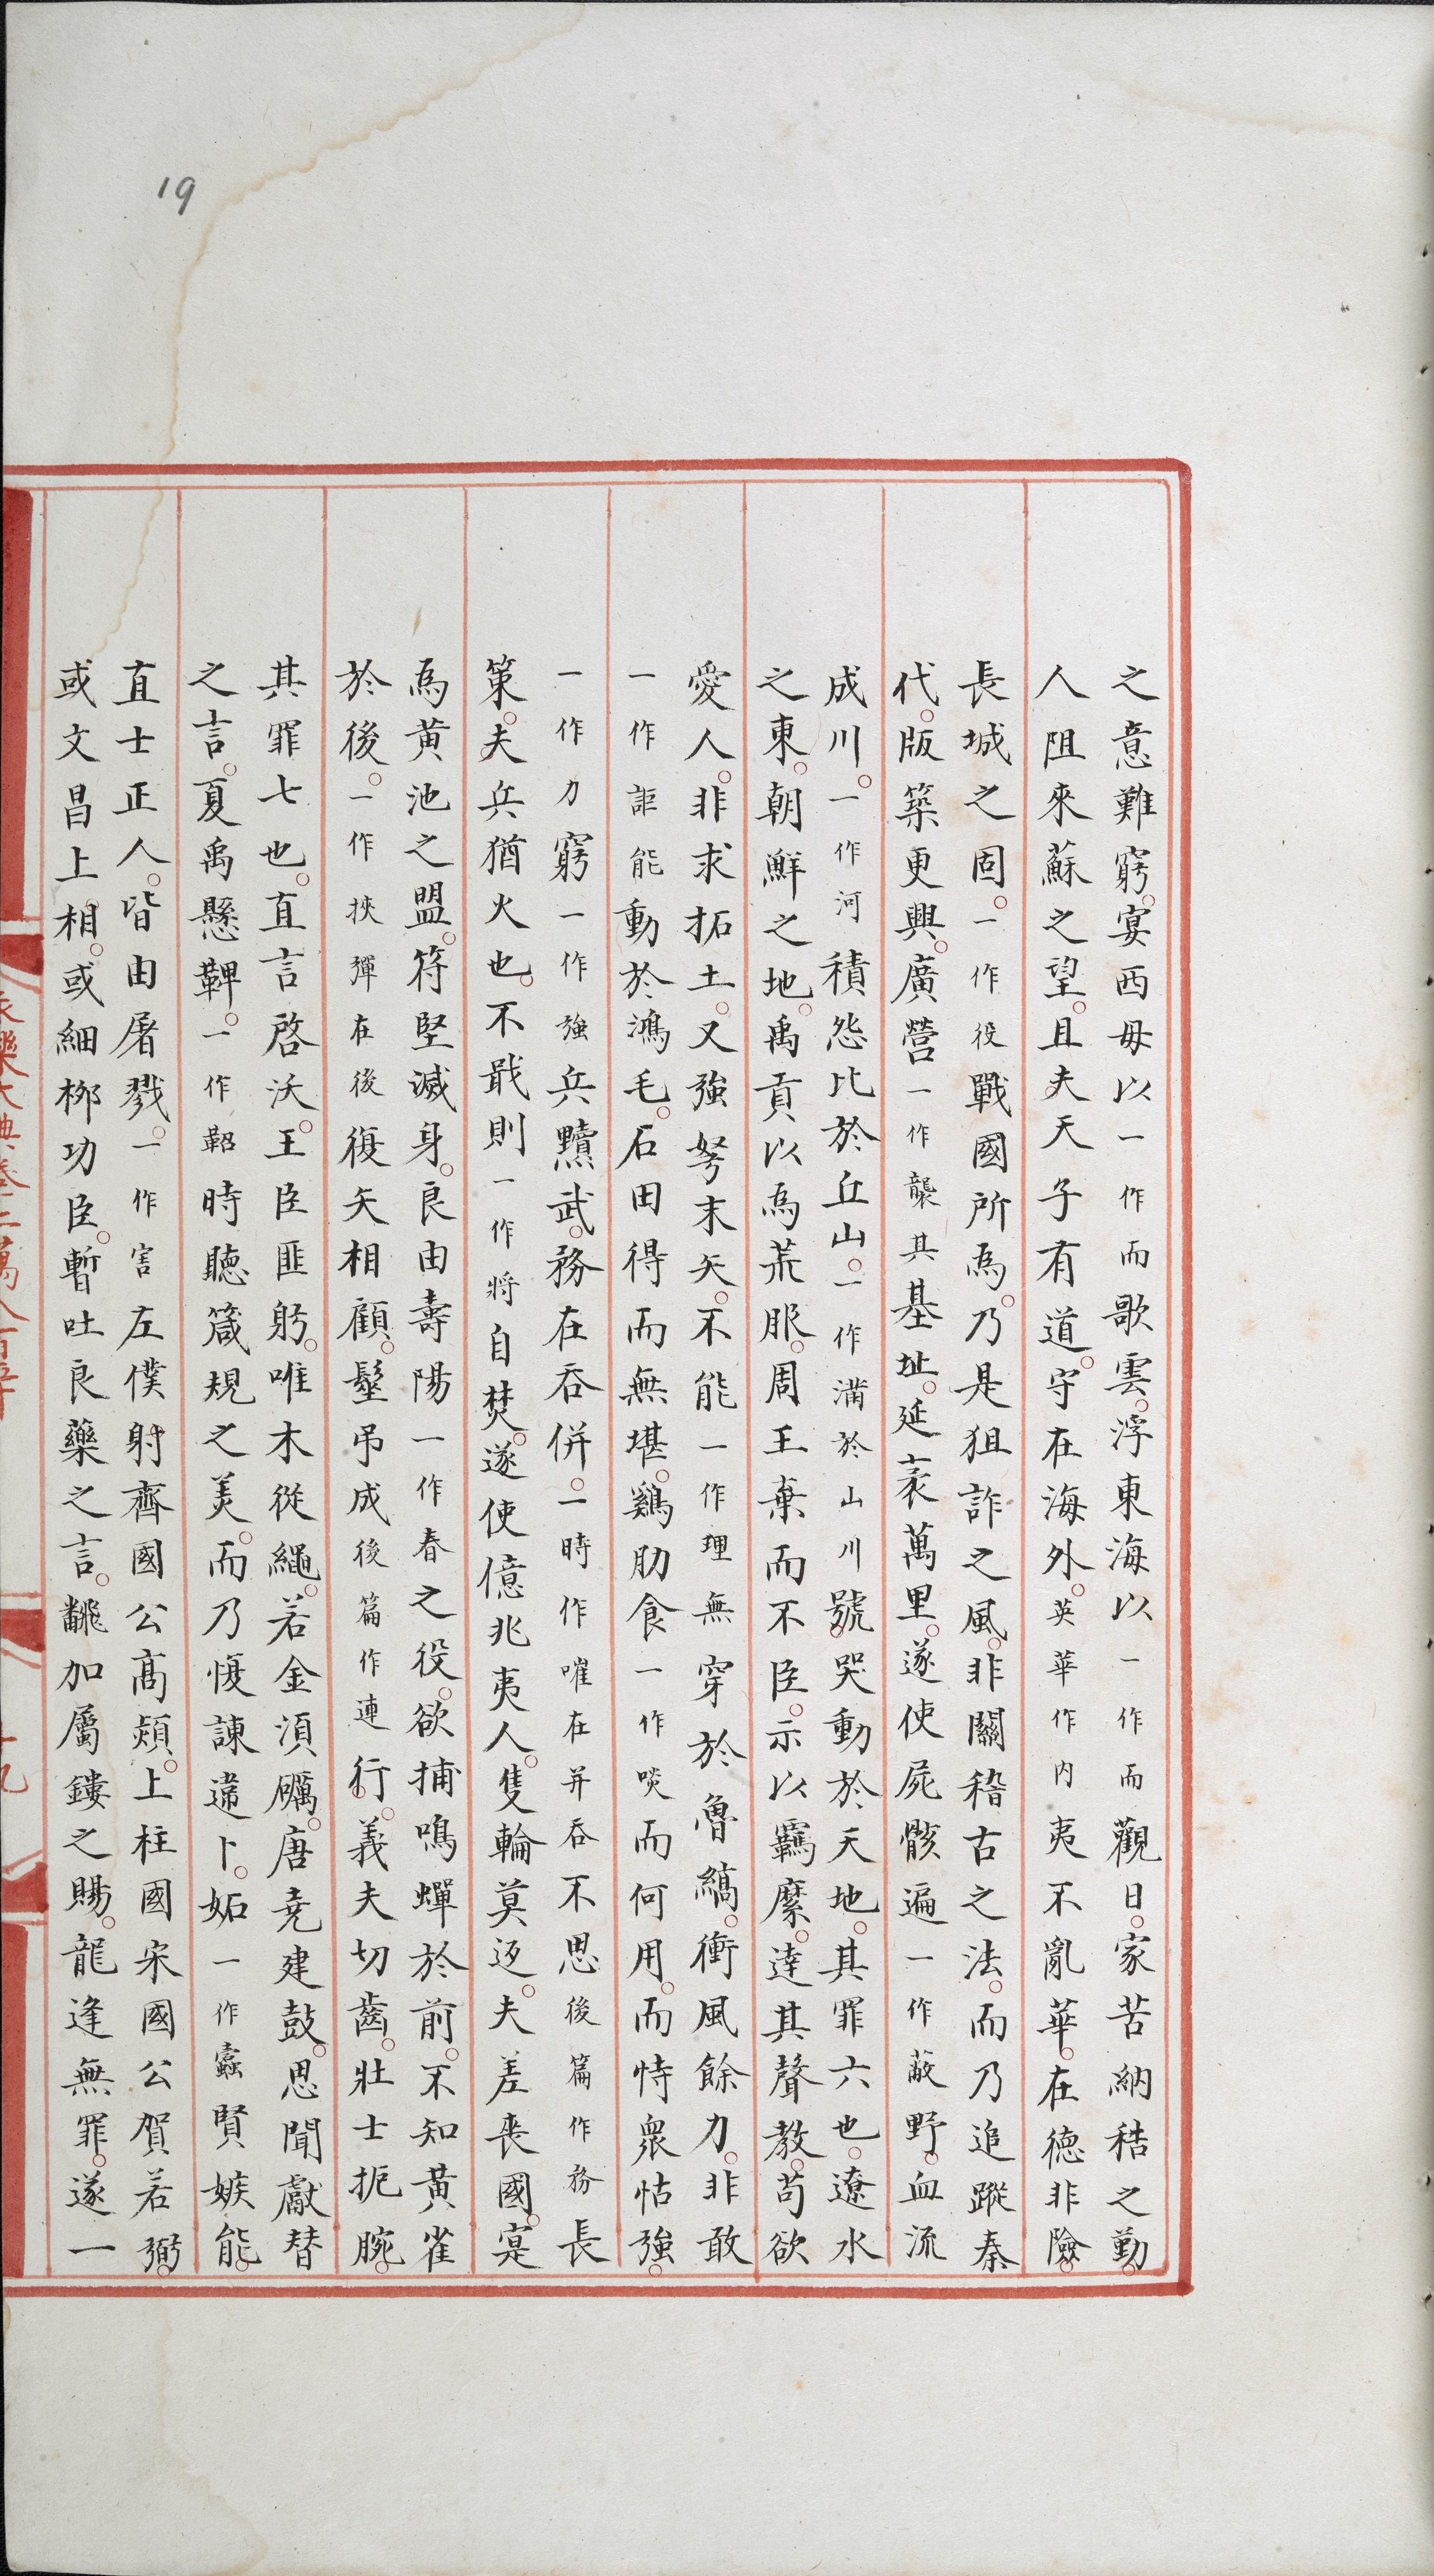 之意難窮宴西毋以一作而歌雲浮東海以一作而觀日家苦納秸之勤
人阻來蘇之望且夫天子有道守在海外英華作内夷不亂華在德非險
長城之固一作役戰國所為乃是狙詐之風非關稽古之法而乃追蹤秦
代版築更興廣營一作襲其基址延袤萬里遂使屍骸遍一作蔽野血流
成川一作河積怨比於丘山一作滿於山川號哭動於天地其罪六也遼水
之東朝鮮之地禹貢以為荒服周王棄而不臣示以羈縻達其聲教苟欲
愛人非求拓土又強弩末矢不能一作理無穿於魯縞衝風餘力非敢
一作詎能動於鴻毛石田得而無堪鷄肋食一作啖而何用而恃衆怙強
一作力窮一作強兵黷武務在吞併一時作嗺在并吞不思後篇作務長
策夫兵猶火也不戢則一作將自焚遂使億兆夷人隻輪莫返夫差喪國寔
為黄池之盟符堅滅身良由壽陽一作春之役欲捕鳴蟬於前不知黃雀
於後一作挾彈在後復矢相顧髽吊成後篇作連行義夫切齒壯士扼腕
其罪七也直言啓沃王臣匪躬唯木從繩若金湏礪唐堯建鼓思聞獻替
之言夏禹懸鞞一作鞀時聽箴規之美而乃愎諫違卜妬一作蠧賢嫉能
直士正人皆由屠戮一作害左僕射齊國公髙熲上柱國宋國公賀若弼
或文昌上相或細栁功臣暫吐良藥之言飜加屬鏤之賜龍逢無罪遂一
19